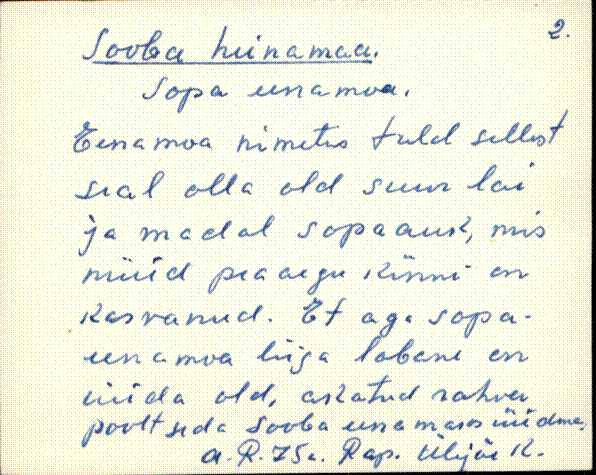 2.
Sooba hiinamaa.
Sopa einamoa.
Eenamoa nimetus tuld sellest
sial olla old suur lai
ja madal sopaauk, mis
nüüd praaegu kinni on
kasvanud. Et aga sopa-
einamoa liiga labane on
üida old, akatud rahva
poolt seda Sooba einamaas üidma.
a. R. 75a. Rap. Ülejõe K.